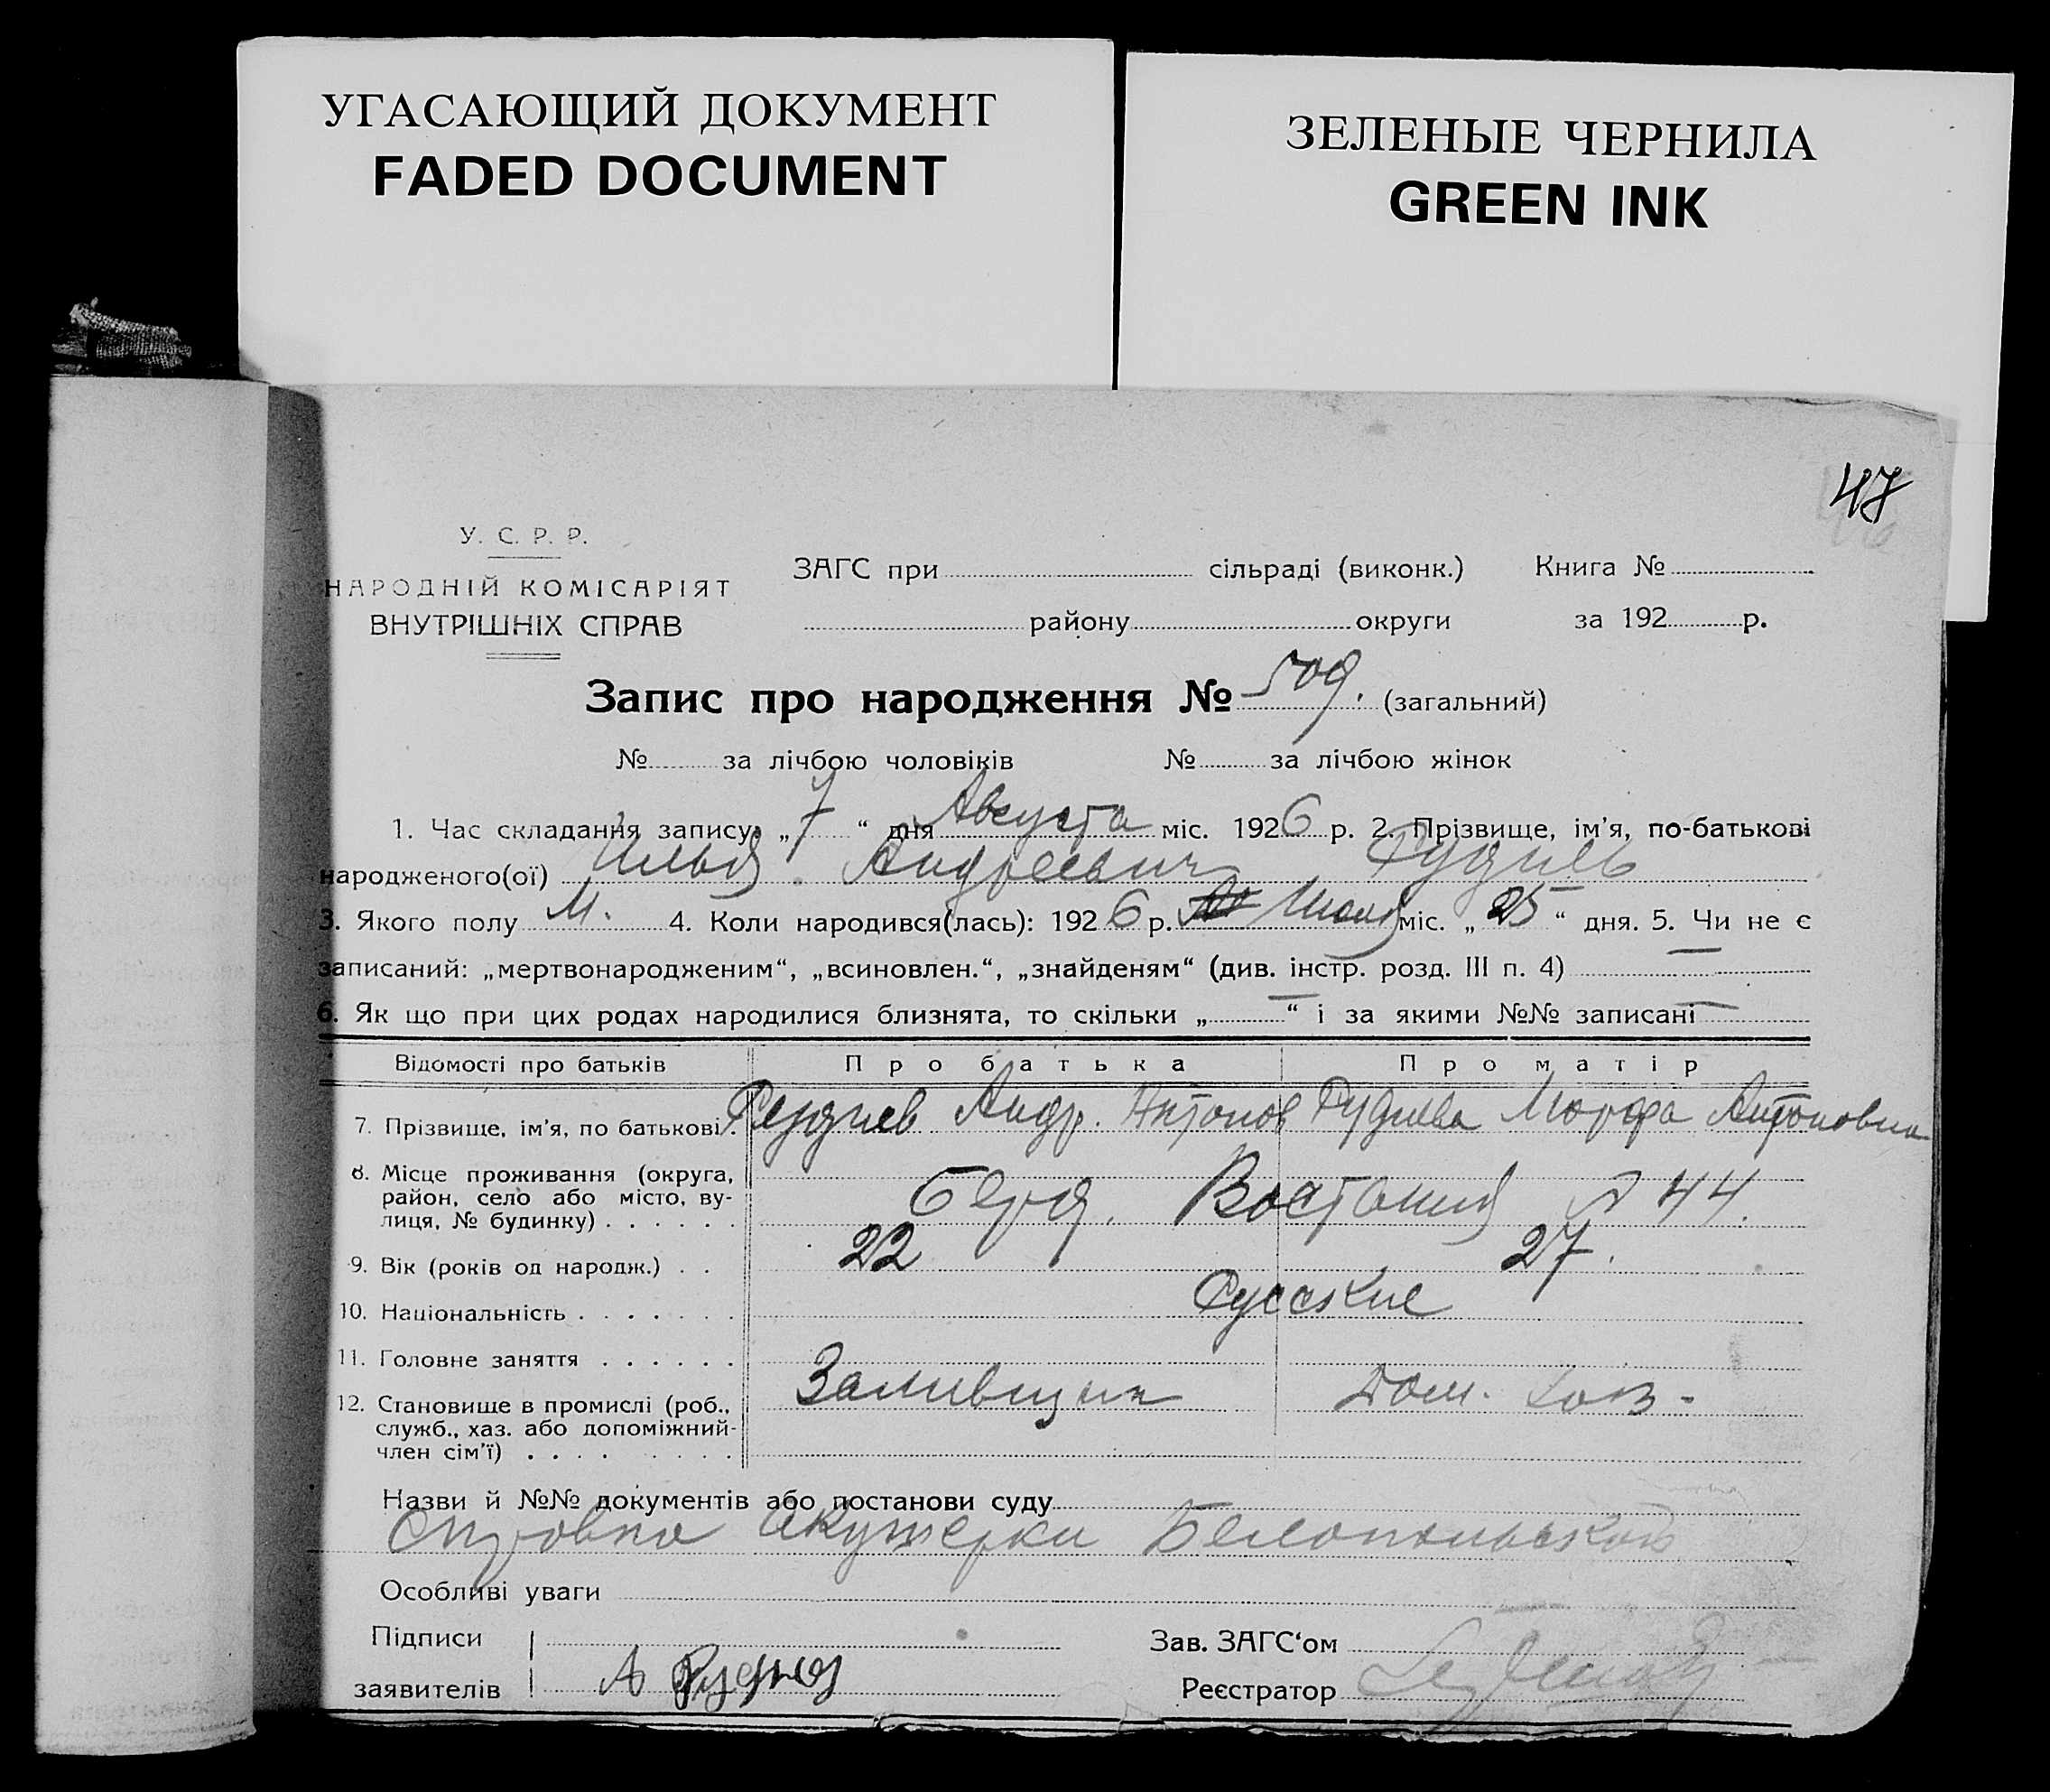 УГАСАЮЩИЙ ДОКУМЕНТ
FADED DOCUMENT
ЗЕЛЕНЫЕ ЧЕРНИЛА
GREEN INK
47
У. С. Р. Р.
НАРОДНІЙ КОМІСАРІЯТ
ВНУТРІШНІХ СПРАВ
ЗАГС при сільраді (виконк.) Книга №
району округи за 192 р.
Запис про народження № 509. (загальний)
№ за лічбою чоловіків № за лічбою жінок
1. Час складання запису: „7“ дня Августа міс. 1926 р. 2. Прізвище, ім’я, по-батькові
народженого(ої) Илья Андреевич Руднев
3. Якого полу М. 4. Коли народився(лась): 1926 р. Июля міс. „25“ дня. 5. Чи не є
записаний: „мертвонародженим“, „всиновлен.“, „знайденям“ (див. інстр. розд. III п. 4) —
6. Як що при цих родах народилися близнята, то скільки „—“ і за якими №№ записані —
Відомості про батьків Про батька Про матір
7. Прізвище, ім’я, по батькові. Руднев Андр. Антонов Руднева Марфа Антоновна
8. Місце проживання (округа,
район, село або місто, ву-
лиця, № будинку) . . . . . . Берд. Востания № 44.
9. Вік (років од народж.) . . 22 27.
10. Національність . . . . . . . Русские
11. Головне заняття . . . . . .
Заливщик Дом. хоз.
12. Становище в промислі (роб.,
служб., хаз. або допоміжний-
член сім’ї) . . . . . . . .
Назви й №№ документів або постанови суду
Справка акушерки Белопольской
Особливі уваги
Підписи
заявителів А Руднев
Зав. ЗАГС‘ом
Реєстратор